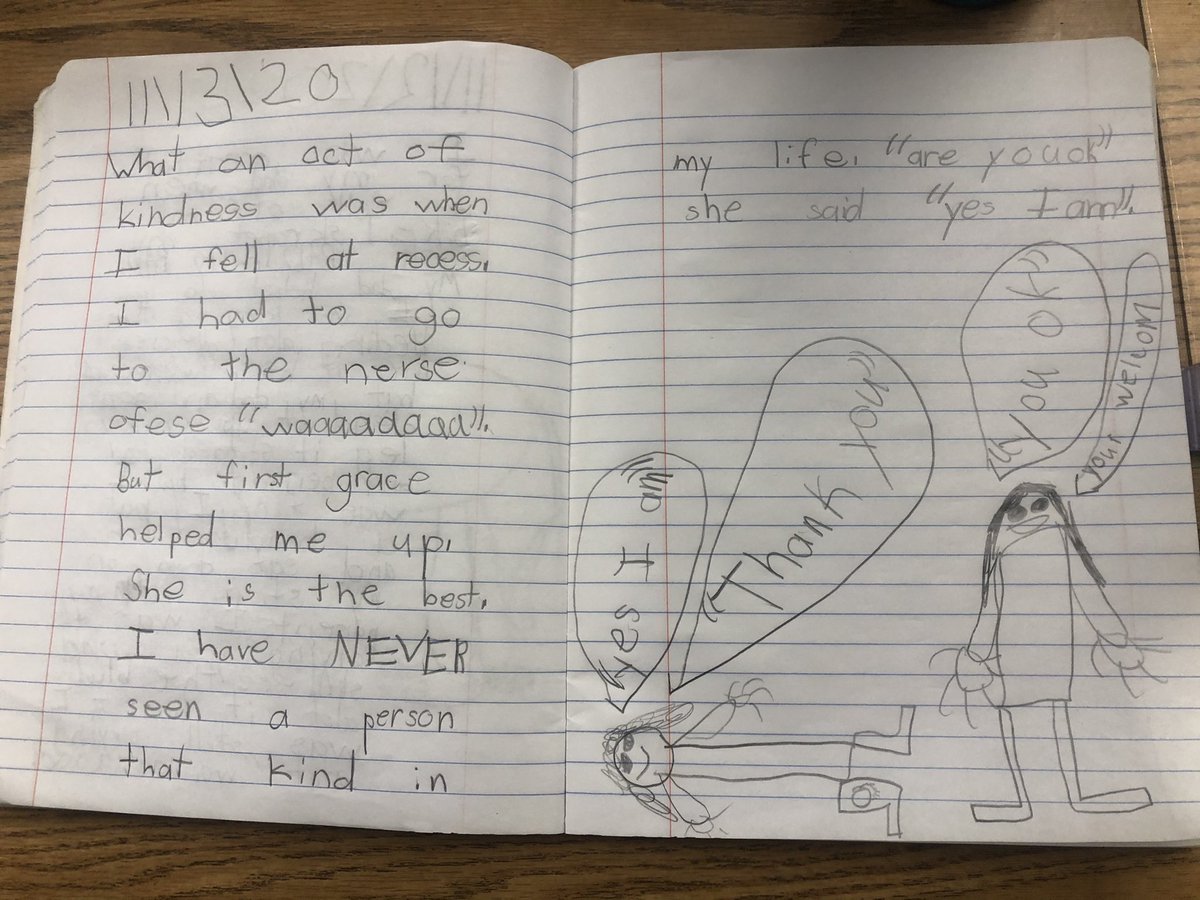 11\13\20
What an act of
kindness was when
I fell at recess.
I had to go
to the nerse
ofese "waaaadaaa".
But first grace
helped me up.
She is the best.
I have NEVER
seen a person
that kind in
my life. "are you ok"
she said "yes I am".
"you ok"
your welyom
"Thank you"
"yes I am"